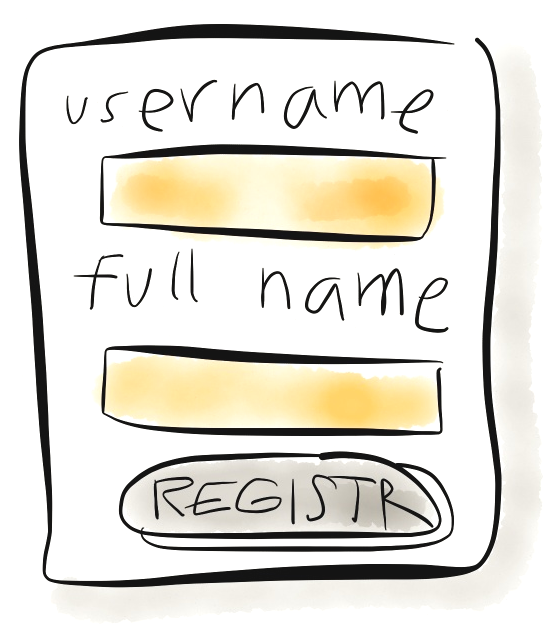 username
full name
REGISTR